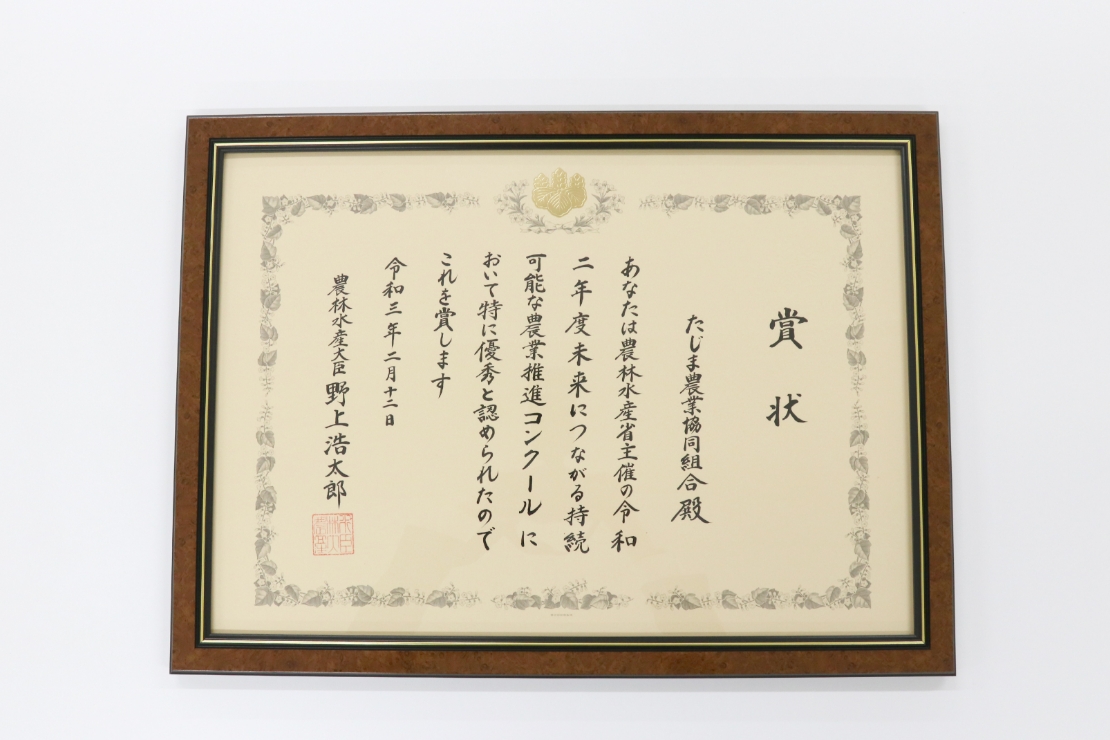 賞状
たじま農業協同組合殿
あなたは農林水産省主催の令和
二年度未来につながる持続
可能な農業推進コンクールに
おいて特に優秀と認められたので
これを賞します
令和三年二月十二日
農林水産大臣 野上浩太郎